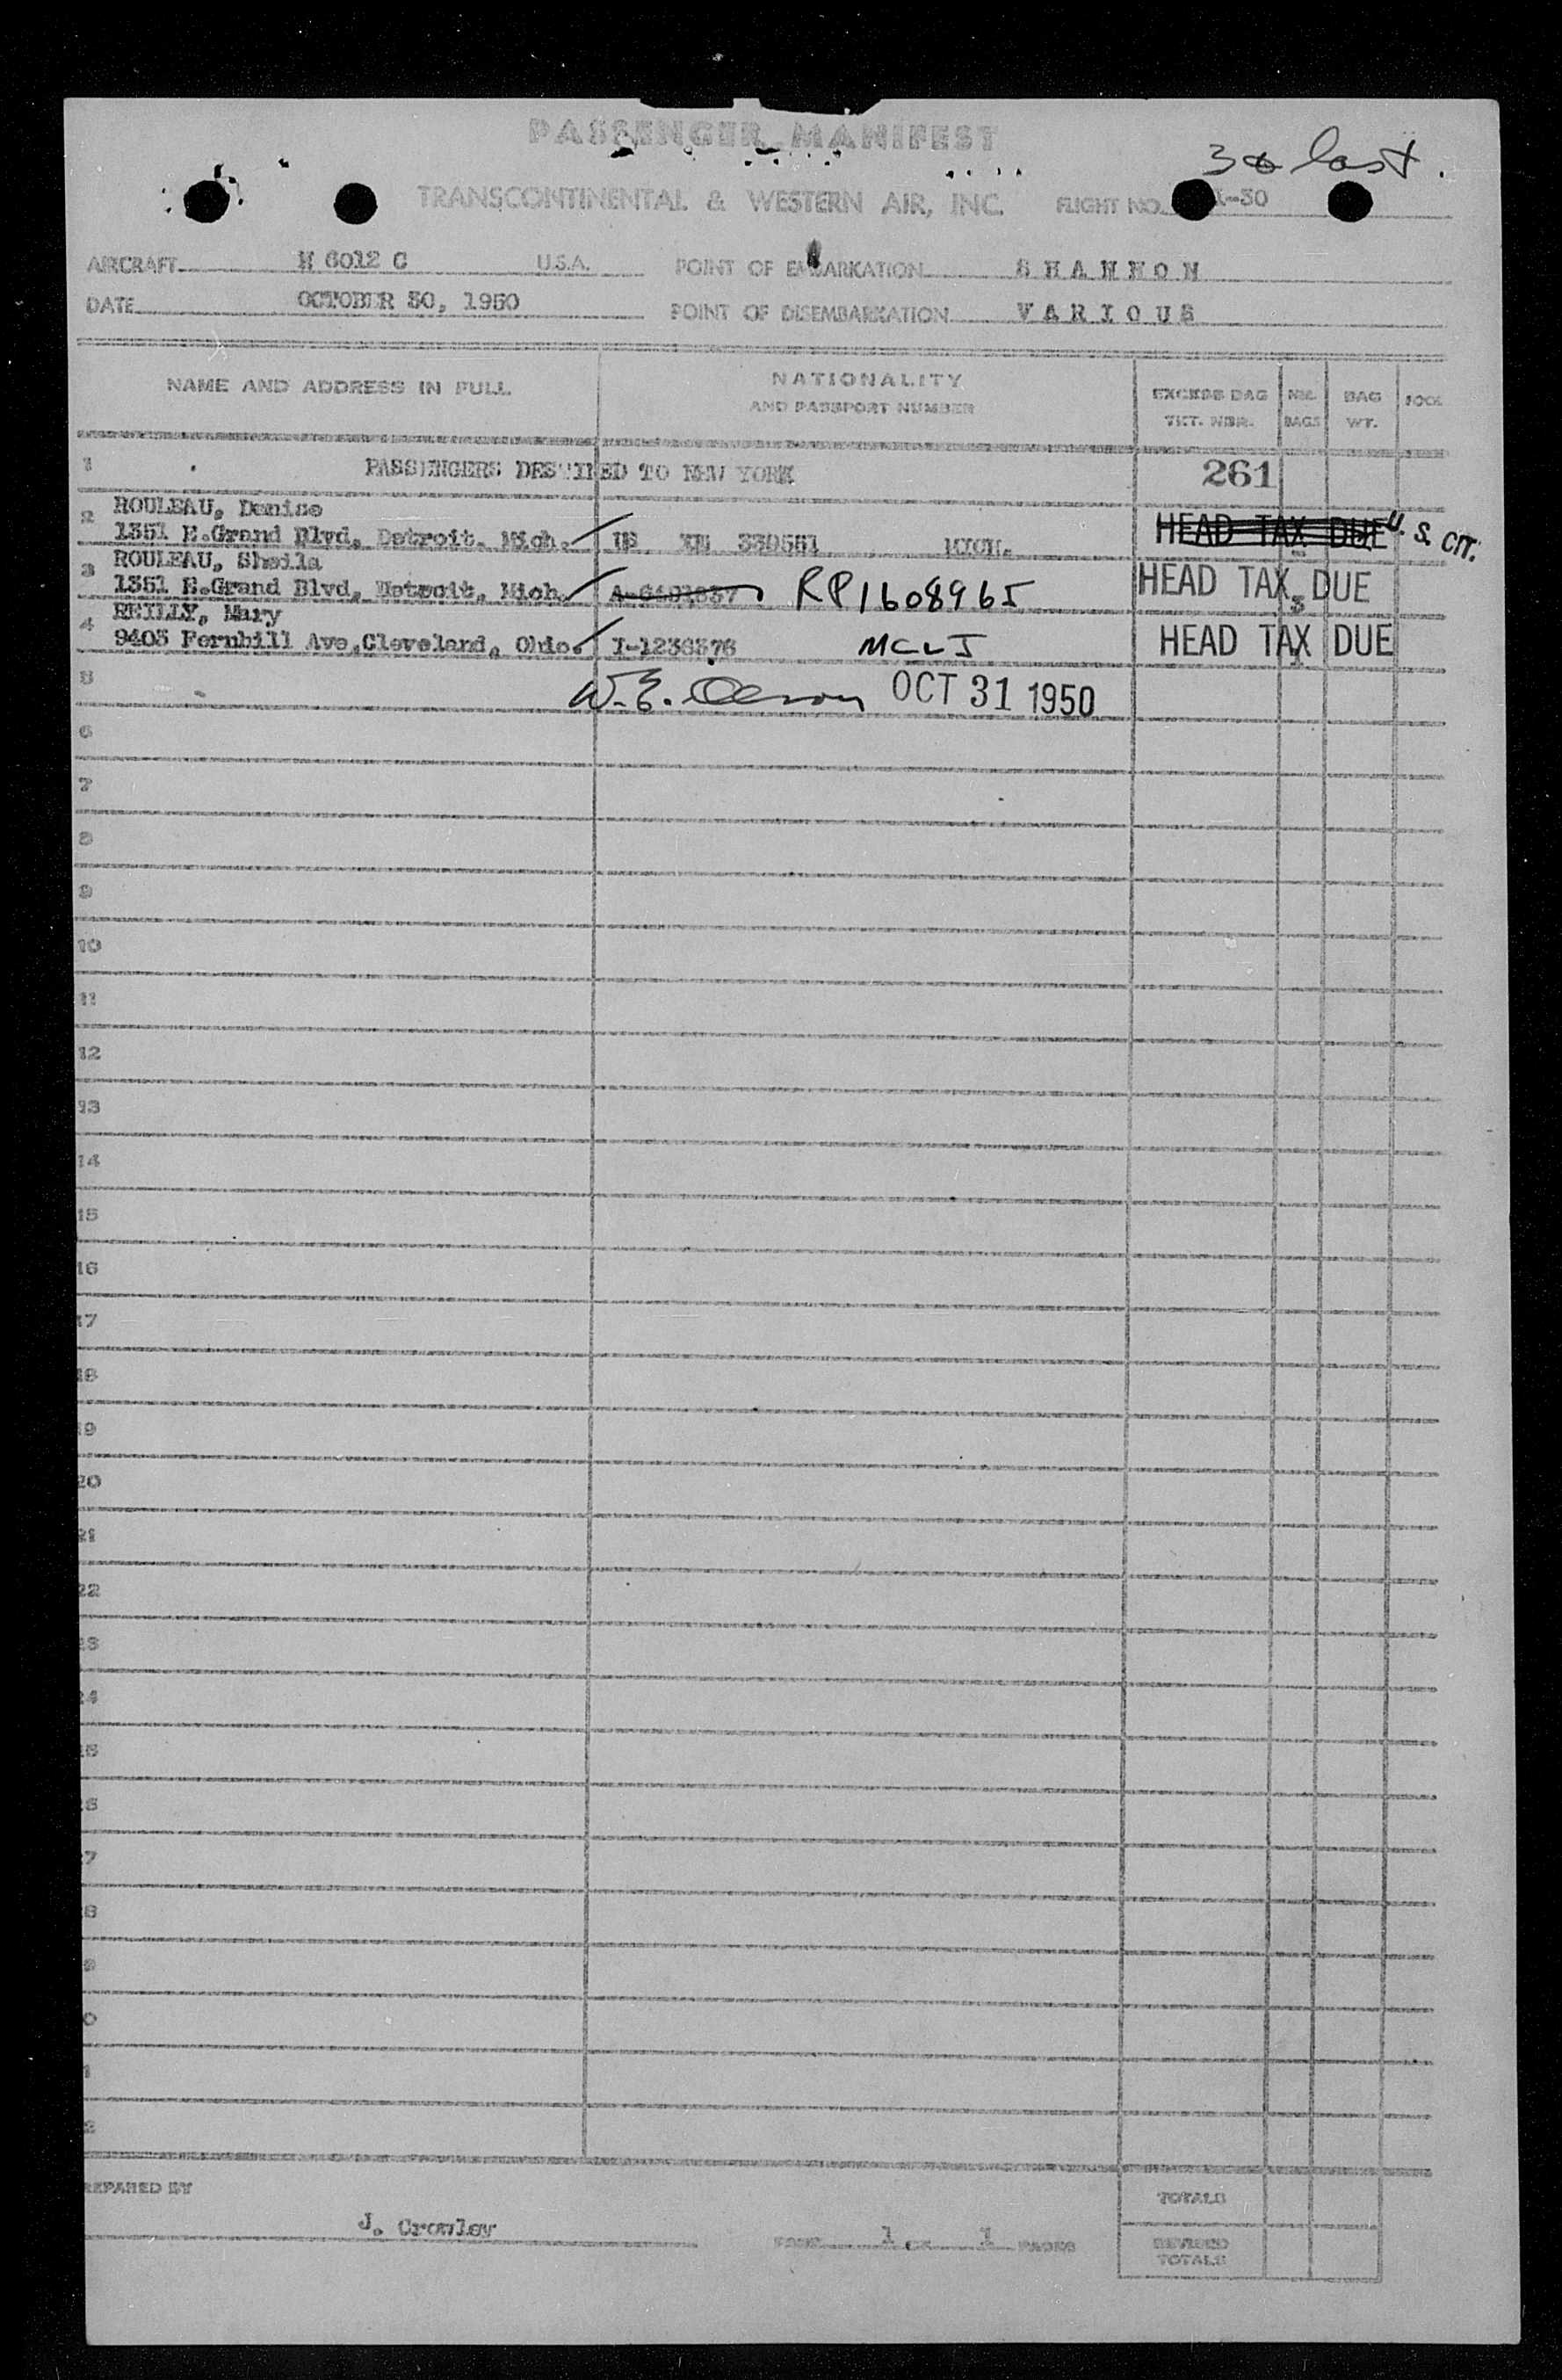 PASSENGER MANIFEST
30 last.
TRANSCONTINENTAL & WESTERN AIR, INC. FLIGHT NO. 1-30
AIRCRAFT N 6012 C U.S.A. POINT OF EMBARKATION S H A N N O N
DATE OCTOBER 30, 1950 POINT OF DISEMBARKATION V A R I O U S
NAME AND ADDRESS IN FULL NATIONALITY AND PASSPORT NUMBER EXCESS BAG TKT. NBR. NBR. BAGS BAG WT.
1 PASSENGERS DESTINED TO NEW YORK 261
ROULEAU, Denise
2 1351 E.Grand Blvd, Detroit, Mich. US 339551 HEAD TAX DUE U.S. CIT.
ROULEAU, Sheila
3 1351 E.Grand Blvd, Detroit, Mich. RP1608965 HEAD TAX DUE
REILLY, Mary
4 9403 Fernhill Ave,Cleveland, Ohio. I-1236376 HEAD TAX DUE
5 W.E. Olson OCT 31 1950
6
7
8
9
10
11
12
13
14
15
16
17
18
19
20
21
22
23
24
25
26
27
28
29
0
1
2
REPARED BY J. Crowley PAGE 1 OF 1 PAGES
TOTALS
REVISED
TOTALS